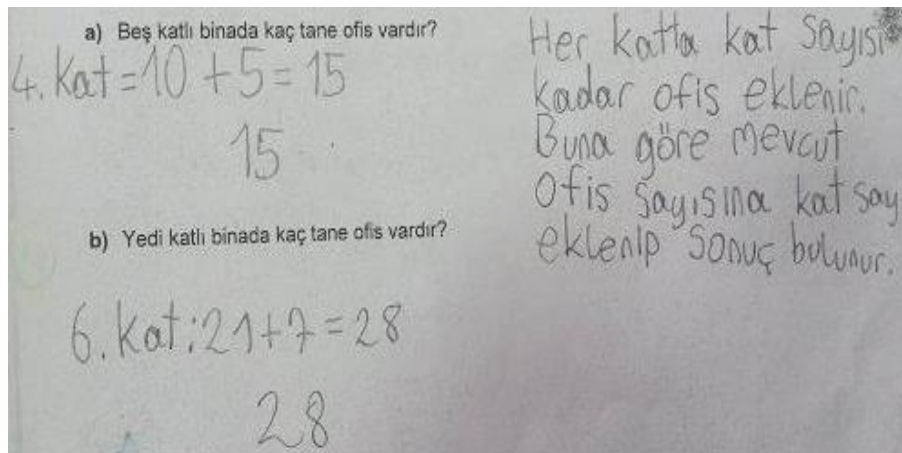 a) Beş katlı binada kaç tane ofis vardır?
4. Kat = 10 + 5 = 15
15
b) Yedi katlı binada kaç tane ofis vardır?
6. Kat : 21 + 7 = 28
28
Her katta kat sayısı
kadar ofis eklenir.
Buna göre mevcut
Ofis sayısına kat say
eklenip sonuç bulunur.